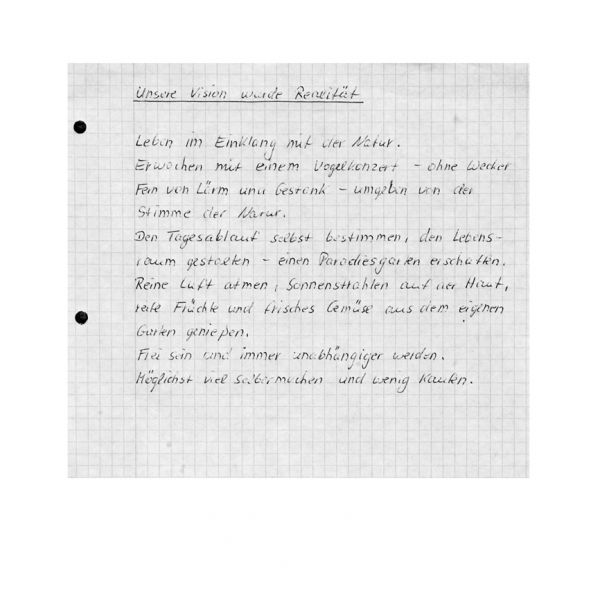 Unsere Vision wurde Realität
Leben im Einklang mit der Natur.
Erwachen mit einem Vogelkonzert – ohne Wecker
Fern von Lärm und Gestank – umgeben von der
Stimme der Natur.
Den Tagesablauf selbst bestimmen, den Lebens-
raum gestalten – einen Paradiesgarten erschaffen.
Reine Luft atmen, Sonnenstrahlen auf der Haut,
reife Früchte und frisches Gemüse aus dem eigenen
Garten genießen.
Frei sein und immer unabhängiger werden.
Möglichst viel selbermachen und wenig kaufen.